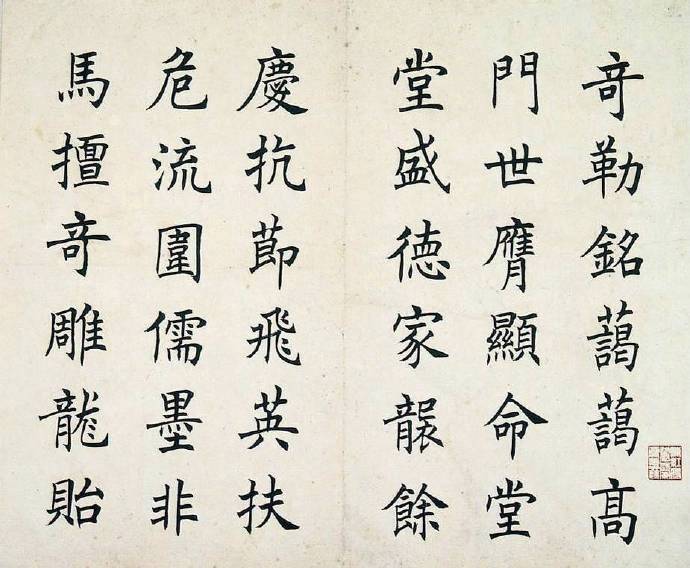 竒勒銘藹藹髙
門世膺顯命堂
堂盛德家襲餘
慶抗莭飛英扶
危流圍儒墨非
馬擅竒雕龍貽